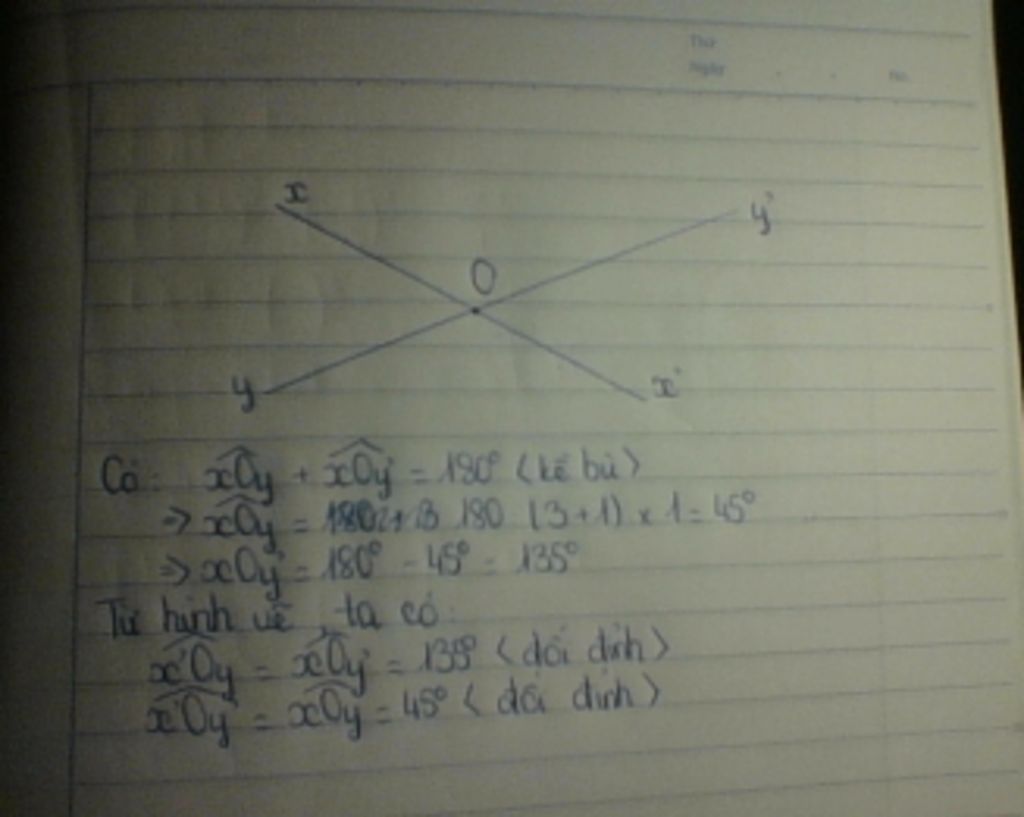 Thứ
Ngày No.
x
y'
O
y
x'
Có: xOy + xOy' = 180° (kề bù)
=> xOy = 180 (3+1) x 1 = 45°
=> xOy' = 180° - 45° = 135°
Từ hình vẽ, ta có:
x'Oy = xOy' = 135° (đối đỉnh)
x'Oy' = xOy = 45° (đối đỉnh)